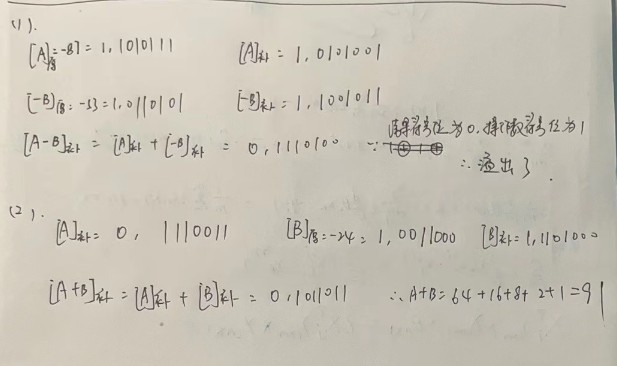 (1).
[A]原=-87=1,1010111 [A]补=1,0101001
[-B]原=-53=1,0110101 [-B]补=1,1001011
[A-B]补=[A]补+[-B]补=0,1110100 ∵ 结果符号位为0,操作数符号位为1
∴溢出了.
(2).
[A]补=0,1110011 [B]原=-24=1,0011000 [B]补=1,1101000
[A+B]补=[A]补+[B]补=0,1011011 ∴A+B=64+16+8+2+1=91